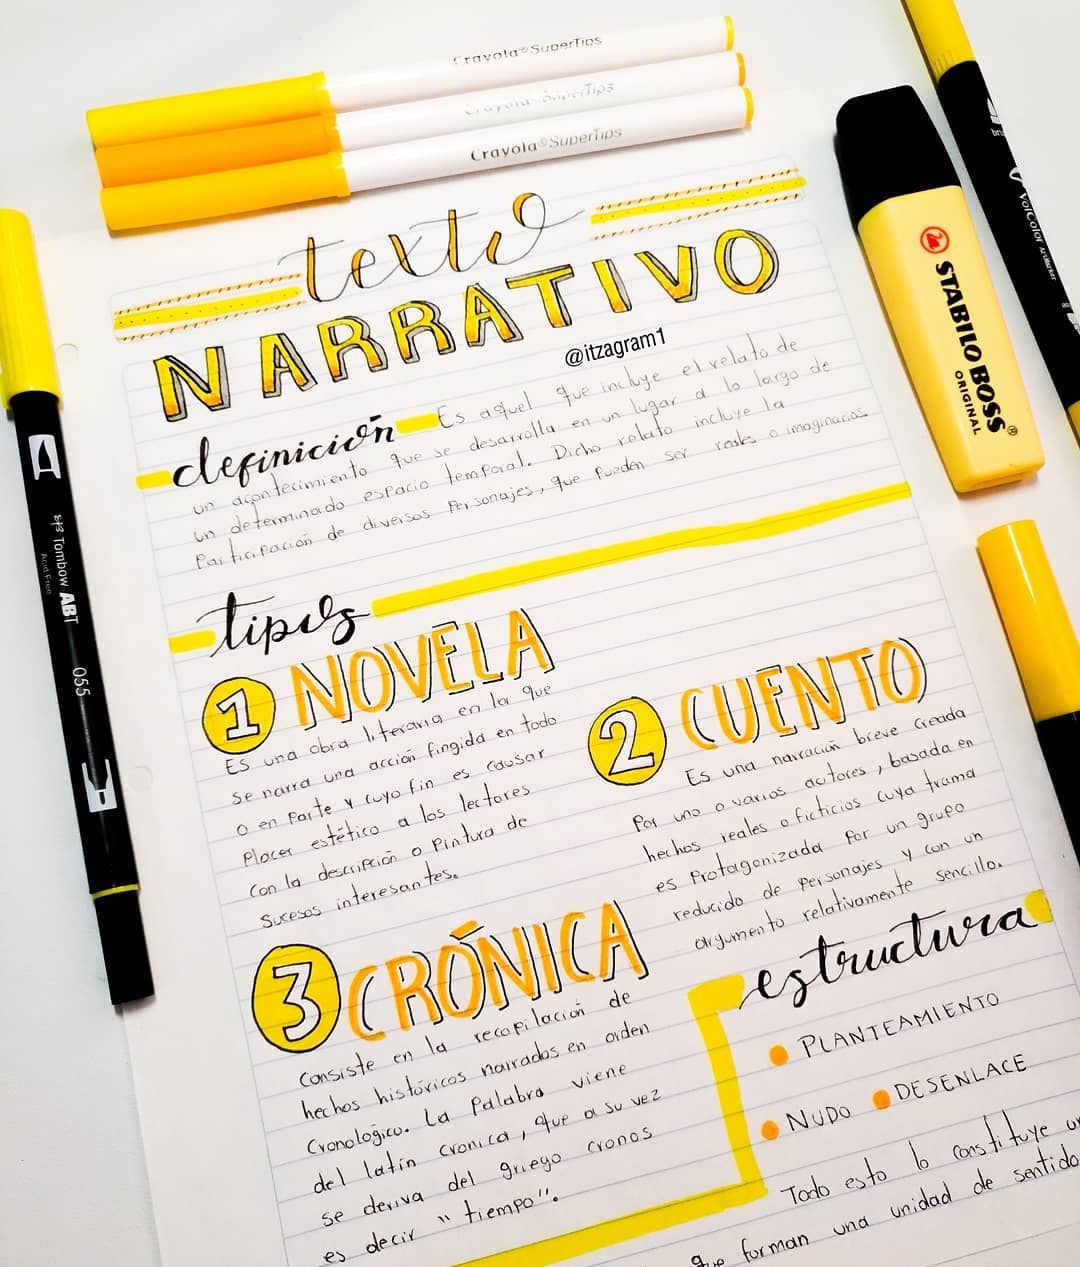 Crayola® SuperTips
Crayola® SuperTips
Crayola® SuperTips
texto
NARRATIVO
@itzagram1
definición Es aquel que incluye el relato de
un acontecimiento que se desarrolla en un lugar a lo largo de
un determinado espacio temporal. Dicho relato incluye la
Participación de diversos Personajes, que Pueden ser reales o imaginarios.
tipos
1 NOVELA
Es una obra literaria en la que
se narra una acción fingida en todo
o en Parte y cuyo fin es causar
Placer estético a los lectores
con la descripción o Pintura de
sucesos interesantes.
2 CUENTO
Es una narración breve creada
Por uno o varios autores, basada en
hechos reales o ficticios cuya trama
es Protagonizada Por un grupo
reducido de Personajes y con un
argumento relativamente sencillo.
3 CRÓNICA
Consiste en la recopilación de
hechos históricos narrados en orden
Cronológico. La Palabra viene
del latín cronica, que a su vez
se deriva del griego cronos
es decir " tiempo".
estructura
PLANTEAMIENTO
NUDO
DESENLACE
Todo esto lo constituye
que forman una unidad de sentido
STABILO BOSS®
ORIGINAL
VolColor ArtMarker
Tombow ABT
Acid Free
055